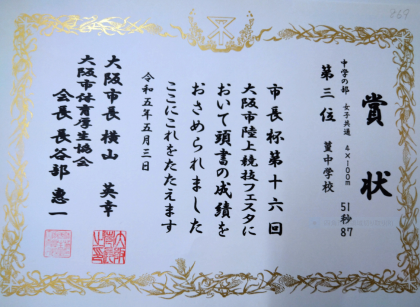 869
賞状
中学の部 女子共通 4×100m 51秒87
第三位 菫中学校
市長杯第十六回
大阪市陸上競技フェスタに
おいて頭書の成績を
おさめられました
ここにこれをたたえます
令和五年五月三日
大阪市長 横山 英幸
大阪市体育厚生協会
会長 長谷部 惠一